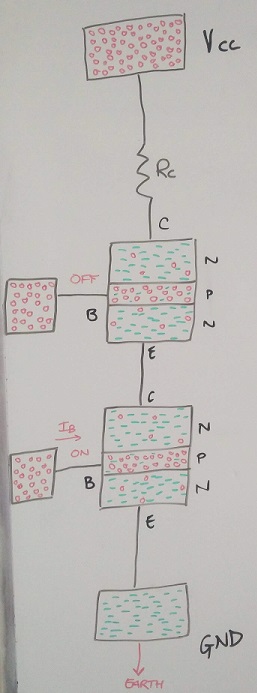 Vcc
Rc
C
N
OFF
P
B
N
E
C
N
IB
ON
P
B
N
E
GND
EARTH